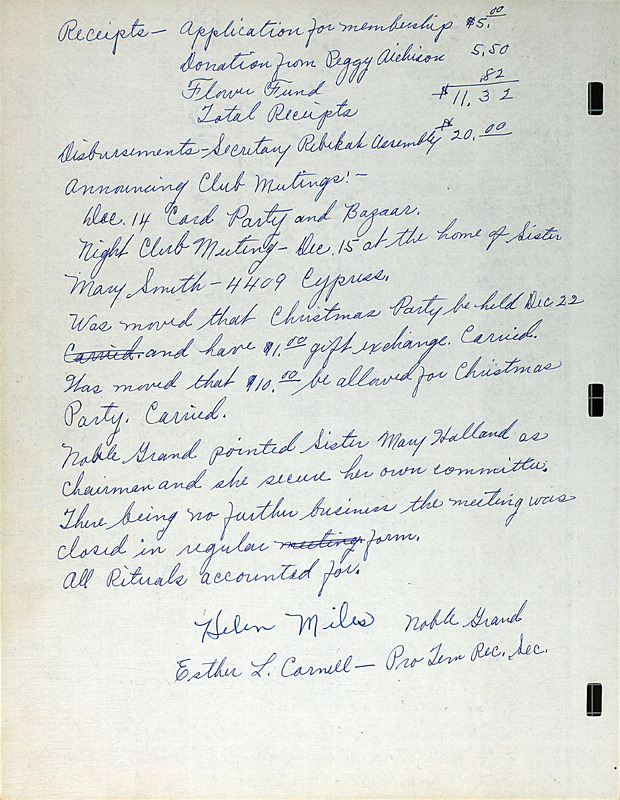 Receipts - Application for membership $5.00
Donation from Peggy Aichison 5.50
Flower Fund .82
Total Receipts $11.32
Disbursements - Secretary Rebekah Assembly $20.00
Announcing Club Meetings: -
Dec. 14 Card Party and Bazaar.
Night Club Meeting - Dec. 15 at the home of Sister
Mary Smith - 4409 Cypress.
Was moved that Christmas Party be held Dec 22
Carried. and have $1.00 gift exchange. Carried.
Was moved that $10.00 be allowed for Christmas
Party. Carried.
Noble Grand pointed Sister Mary Holland as
Chairman and she secure her own committee.
There being no further business the meeting was
closed in regular meeting form.
All Rituals accounted for.
Helen Miles Noble Grand
Esther L. Carnell - Pro Tem Rec. Sec.